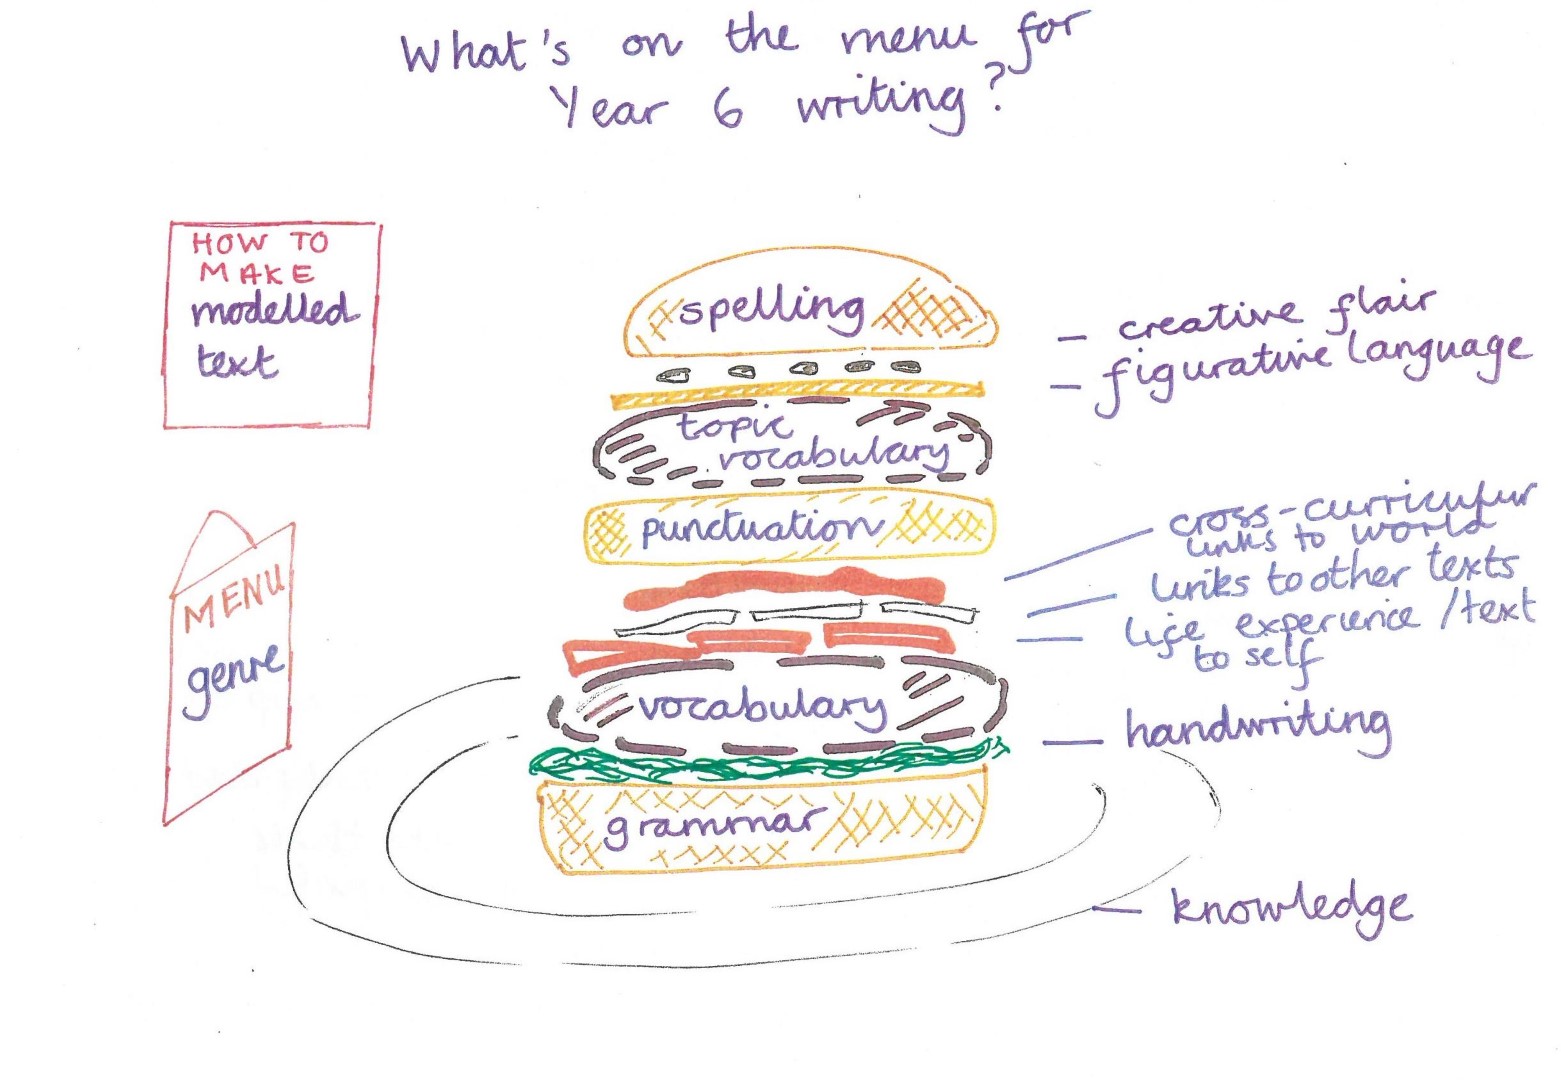 What's on the menu for
Year 6 writing?
HOW TO
MAKE
modelled
text
MENU
genre
spelling
topic
vocabulary
punctuation
vocabulary
grammar
- creative flair
- figurative language
cross-curricular
links to world
links to other texts
life experience /text
to self
handwriting
knowledge